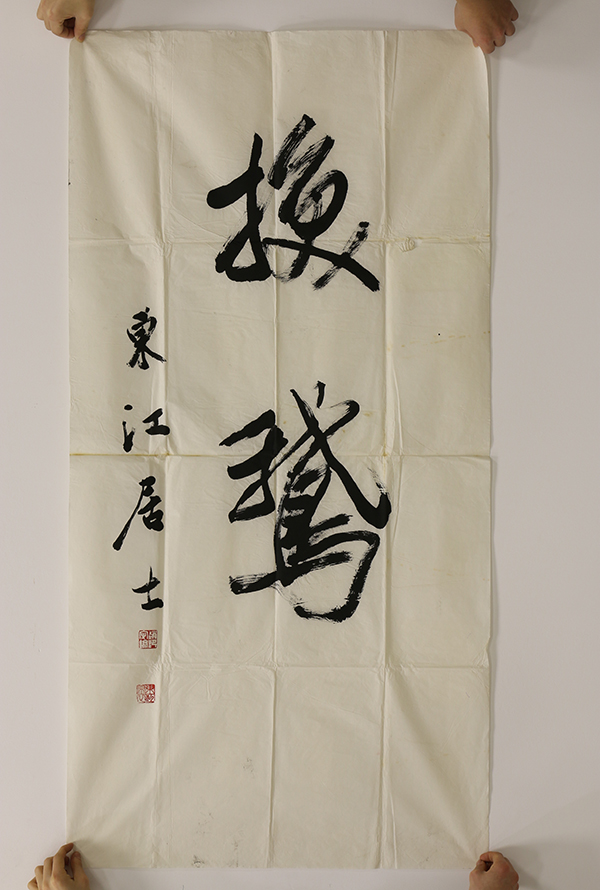 換鵝
東江居士